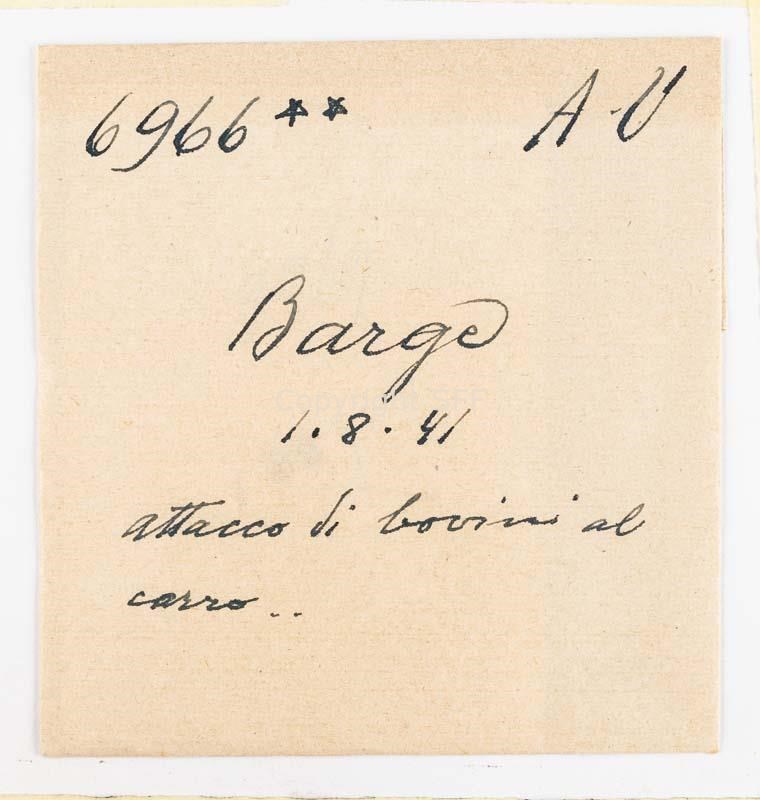 6966 ** A-V
Barge
1.8.41
attacco di bovini al
carro..